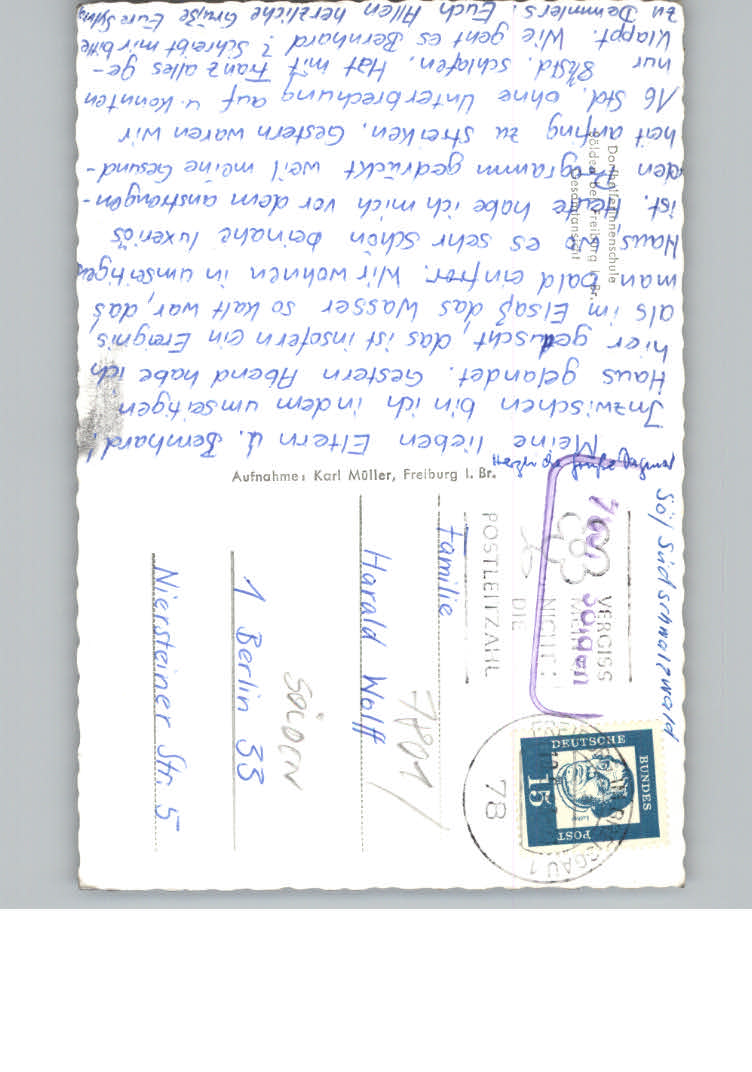 Meine lieben Eltern u. Bernhard!
Inzwischen bin ich indem umseitigen
Haus gelandet. Gestern Abend habe ich
hier geduscht, das ist insofern ein Ereignis
als im Elsaß das Wasser so kalt war, daß
man bald einfror. Wir wohnen in umseitigen
Haus, wo es sehr schön beinahe luxeriös
ist. Heute habe ich mich vor dem anstrengen-
den Programm gedrückt weil meine Gesund-
heit anfing zu streiken. Gestern waren wir
16 Std. ohne Unterbrechung auf u. konnten
nur 8½ Std. schlafen. Hat mit Franz alles ge-
klappt. Wie geht es Bernhard? Schreibt mir bitte
zu Demmlers. Euch Allen herzliche Grüße Eure Sylvia
Dorfhelferinnenschule
Sölden bei Freiburg i. Br.
Gesamtansicht
Aufnahme: Karl Müller, Freiburg i. Br.
Söl Südschwarzwald
7801 Sölden
VERGISS
MEIN
NICHT
DIE
POSTLEITZAHL
78
DEUTSCHE
BUNDES
POST
15
Familie
Harald Wolff
7801
1 Berlin 33
SÖLDEN
Niersteiner Str. 5